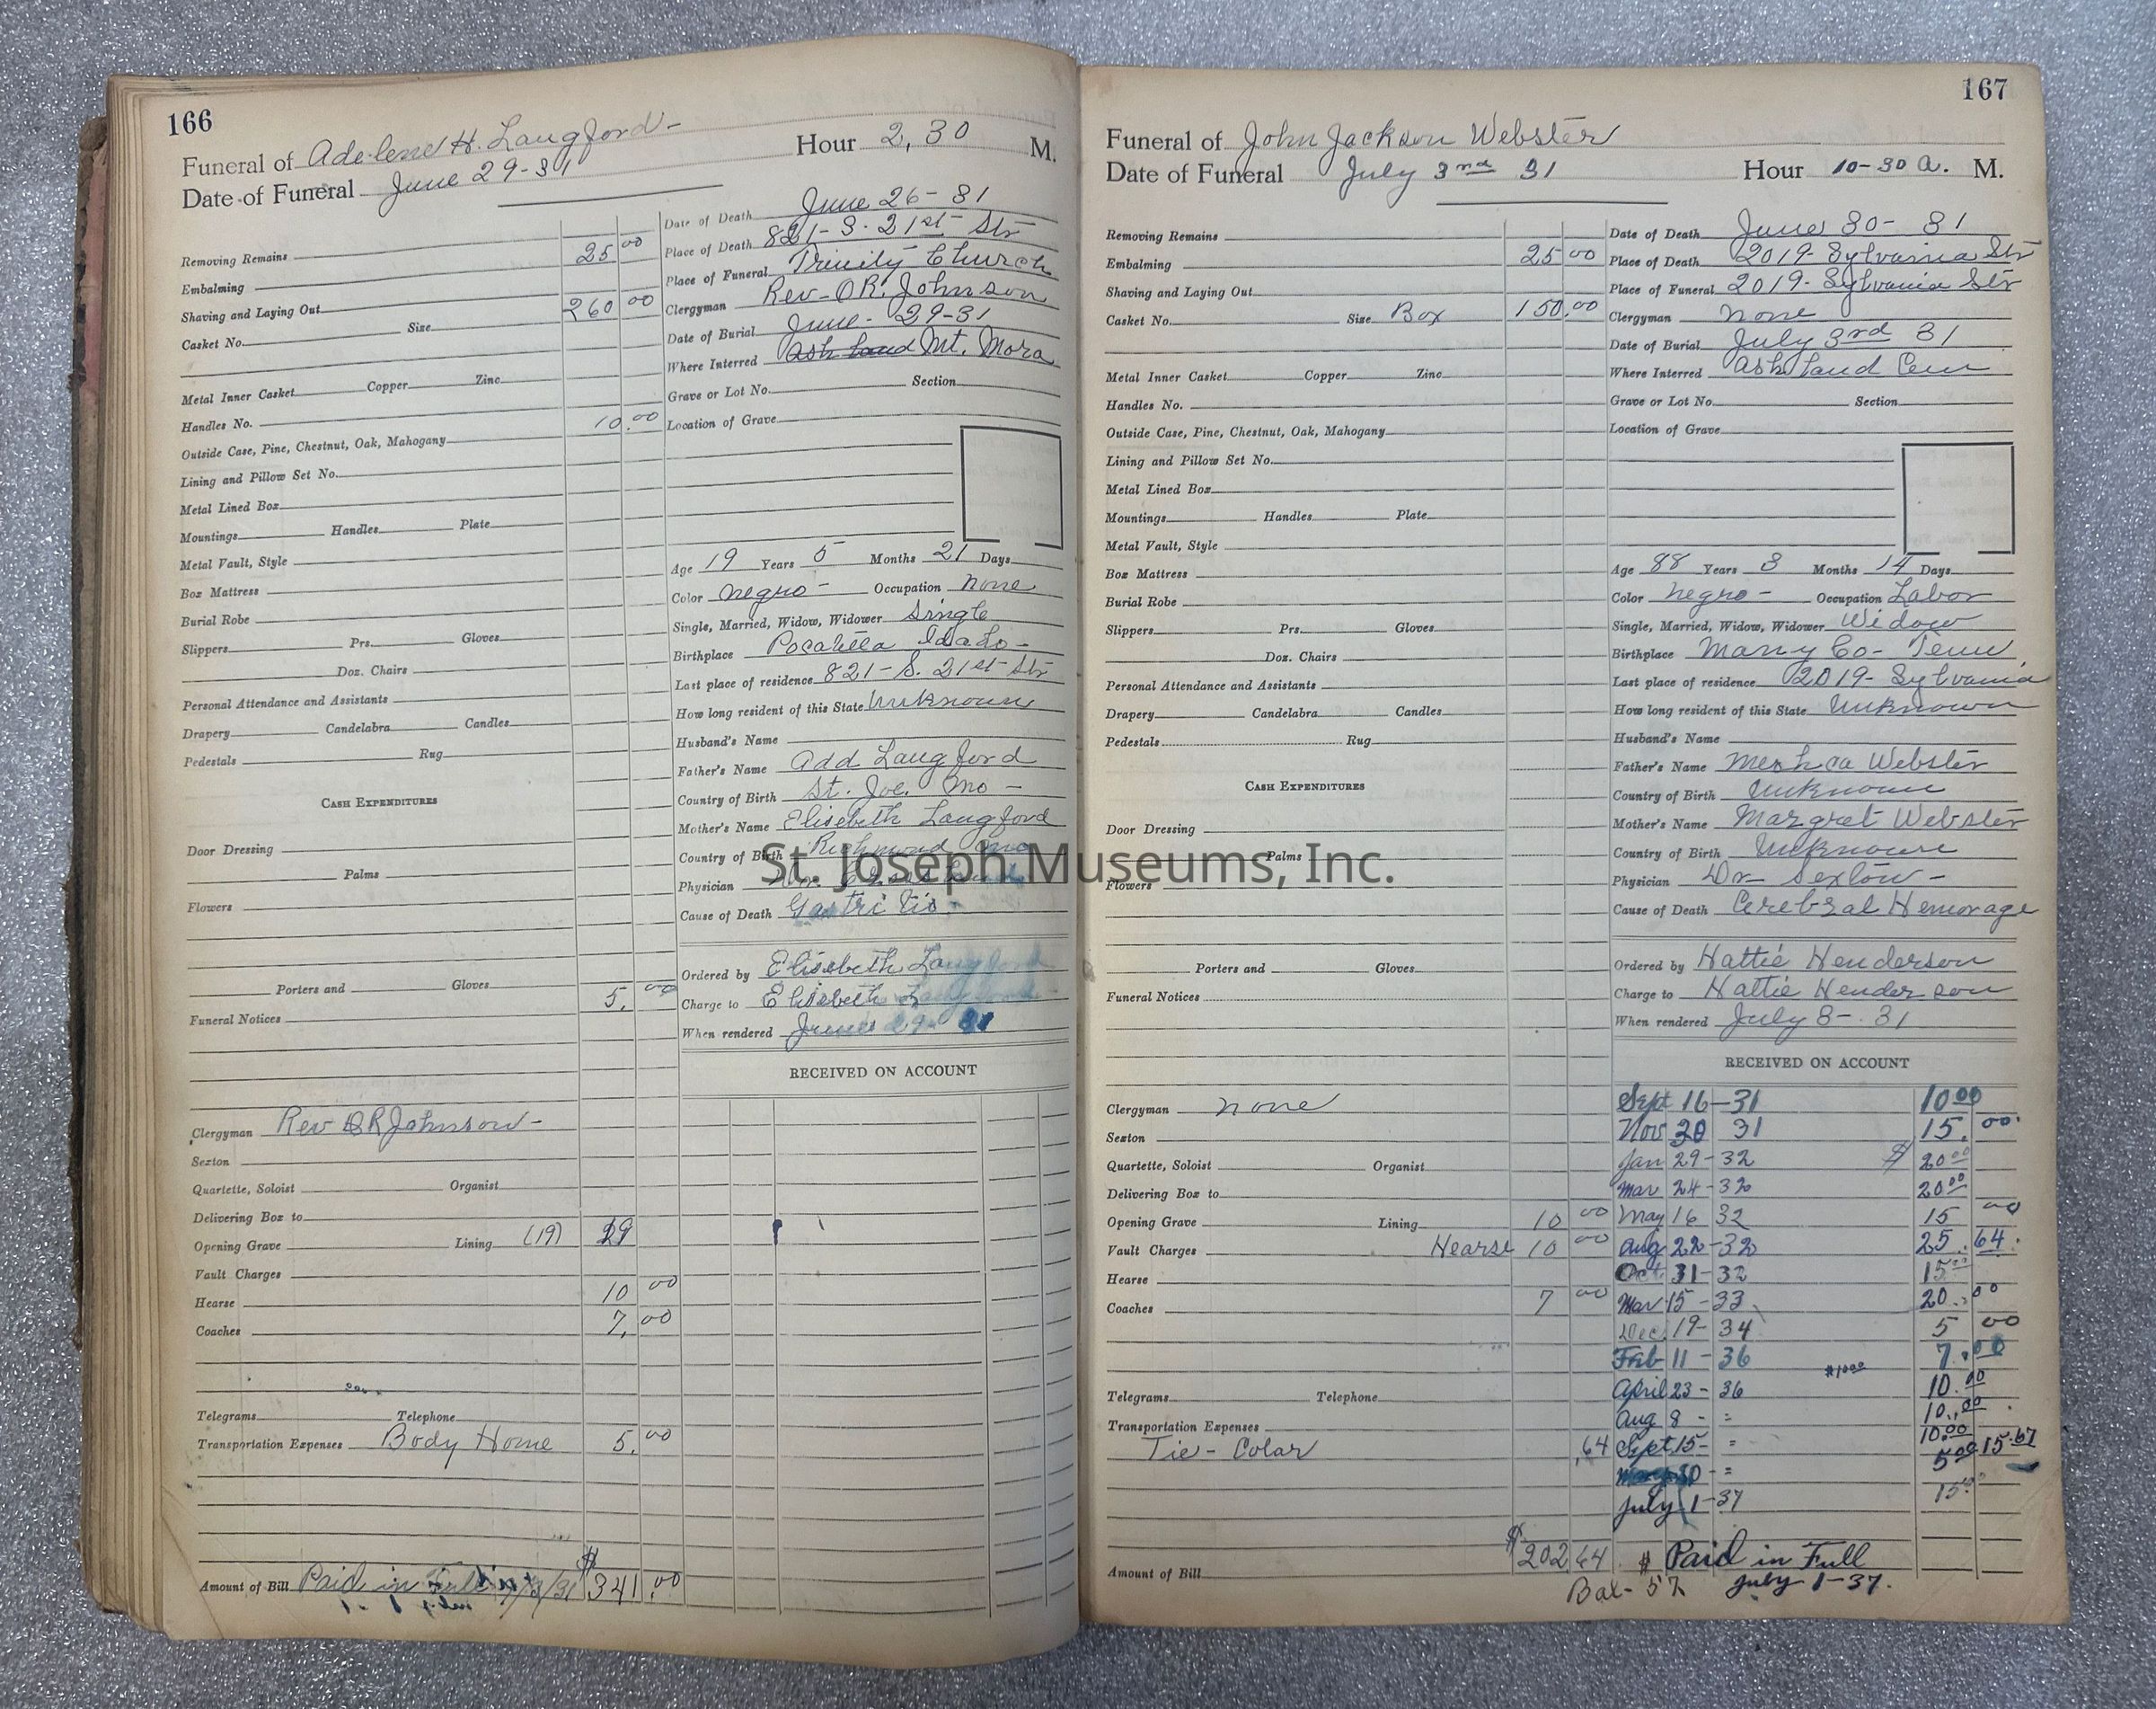 166
Funeral of Adelene H. Langford-
Hour 2,30 M.
Date of Funeral June 29-31
Removing Remains 25 00
Embalming
Shaving and Laying Out 260 00
Size
Casket No.
Metal Inner Casket Copper Zinc
Handles No. 10.00
Outside Case, Pine, Chestnut, Oak, Mahogany
Lining and Pillow Set No.
Metal Lined Box
Mountings Handles Plate
Metal Vault, Style
Box Mattress
Burial Robe
Slippers Prs. Gloves
Doz. Chairs
Personal Attendance and Assistants
Drapery Candelabra Candles
Pedestals Rug
CASH EXPENDITURES
Door Dressing
Palms
Flowers
Porters and Gloves 5. 00
Funeral Notices
Clergyman Rev OR Johnson-
Sexton
Quartette, Soloist Organist
Delivering Box to
Opening Grave Lining (19) 29
Vault Charges
Hearse 10 00
Coaches 7. 00
Telegrams Telephone
Transportation Expenses Body Home 5. 00
Amount of Bill Paid in Full 7/3/31 $341.00
Date of Death June 26-31
Place of Death 821-S. 21st Str
Place of Funeral Trinity Church
Clergyman Rev-OR. Johnson
Date of Burial June-29-31
Where Interred Ashland Mt. Mora
Grave or Lot No. Section
Location of Grave
Age 19 Years 5 Months 21 Days
Color negro- Occupation none
Single, Married, Widow, Widower Single
Birthplace Pocatella Idaho-
Last place of residence 821-S. 21st Str
How long resident of this State Unknown
Husband's Name
Father's Name Add Langford
Country of Birth St. Joe. Mo-
Mother's Name Elisebeth Langford
Country of Birth Richmond Mo
Physician
Cause of Death Gastritis-
Ordered by Elisebeth Langford
Charge to Elisebeth Langford
When rendered June 29-31
RECEIVED ON ACCOUNT
St. Joseph Museums, Inc.
167
Funeral of John Jackson Webster
Date of Funeral July 3rd 31 Hour 10-30 a. M.
Removing Remains
Embalming 25 00
Shaving and Laying Out
Casket No. Size Box 150.00
Metal Inner Casket Copper Zinc
Handles No.
Outside Case, Pine, Chestnut, Oak, Mahogany
Lining and Pillow Set No.
Metal Lined Box
Mountings Handles Plate
Metal Vault, Style
Box Mattress
Burial Robe
Slippers Prs. Gloves
Doz. Chairs
Personal Attendance and Assistants
Drapery Candelabra Candles
Pedestals Rug
CASH EXPENDITURES
Door Dressing
Palms
Flowers
Porters and Gloves
Funeral Notices
Clergyman none
Sexton
Quartette, Soloist Organist
Delivering Box to
Opening Grave Lining 10 00
Vault Charges Hearse 10 00
Hearse
Coaches 7 00
Telegrams Telephone
Transportation Expenses
Tie-Colar .64
Amount of Bill $202.64
Bal- 57
Date of Death June 30-31
Place of Death 2019-Sylvania Str
Place of Funeral 2019-Sylvania Str
Clergyman none
Date of Burial July 3rd 31
Where Interred Ashland Cem
Grave or Lot No. Section
Location of Grave
Age 88 Years 3 Months 14 Days
Color negro- Occupation Labor
Single, Married, Widow, Widower Widow
Birthplace Mary Co-Tenn.
Last place of residence 2019-Sylvania
How long resident of this State Unknown
Husband's Name
Father's Name Webster
Country of Birth Unknown
Mother's Name Margret Webster
Country of Birth Unknown
Physician Dr Sexton-
Cause of Death Cerebral Hemorage
Ordered by Hattie Henderson
Charge to Hattie Henderson
When rendered July 8-31
RECEIVED ON ACCOUNT
Sept 16-31 10 00
Nov 20 31 15. 00
Jan 29-32 $ 20 00
Mar 24-32 20 00
May 16 32 15 00
Aug 22-32 25. 64
Oct 31-32 15 00
Mar 15-33 20. 00
Dec. 19-34 5 00
Feb 11-36 7.00
$10.00
April 23-36 10.00
Aug 8 - = 10.00
Sept 15- = 10.00
5 00 15.67
July 1-37 15 00
$ Paid in Full
July 1-37.